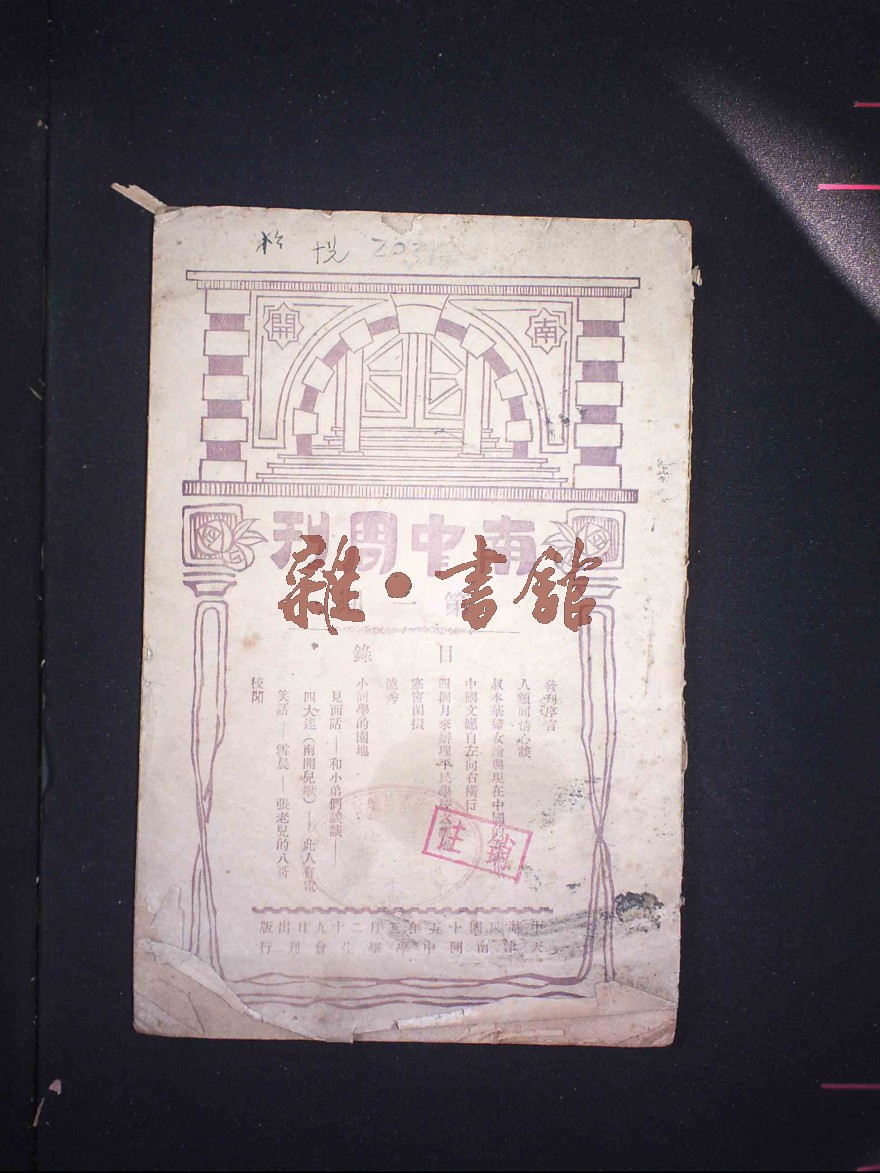 2031
南開
南中周刊
雜·書館
第一
目錄
發刊序言
人類同情心談
叔本華婦女論與現在中國的
中國文應自左向右橫行
四個月來辦理平民學校
塞窗閒掇
小同學的園地
見面話——和小弟們談談——
四大迷(南開兒獻)——此人有電
笑話——雲晨——張老兒的八哥
校聞
註銷
十五年
月二十九日出版
南開中學學生會刊行